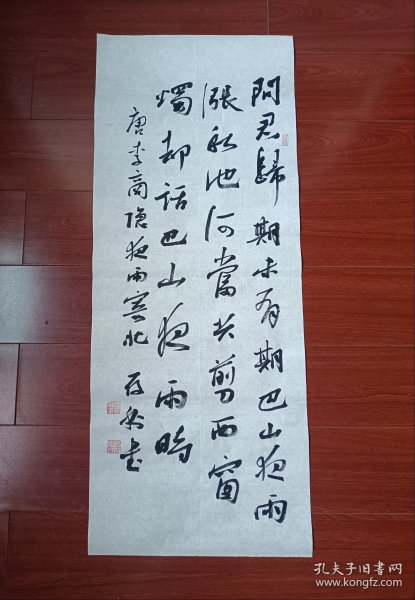 問君歸期未有期巴山夜雨
漲秋池何當共剪西窗
燭却話巴山夜雨時
唐李商隐夜雨寄北
书
孔夫子旧书网
www.kongfz.com